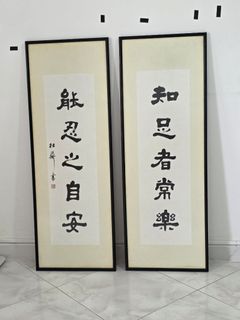 知足者常樂
能忍之自安